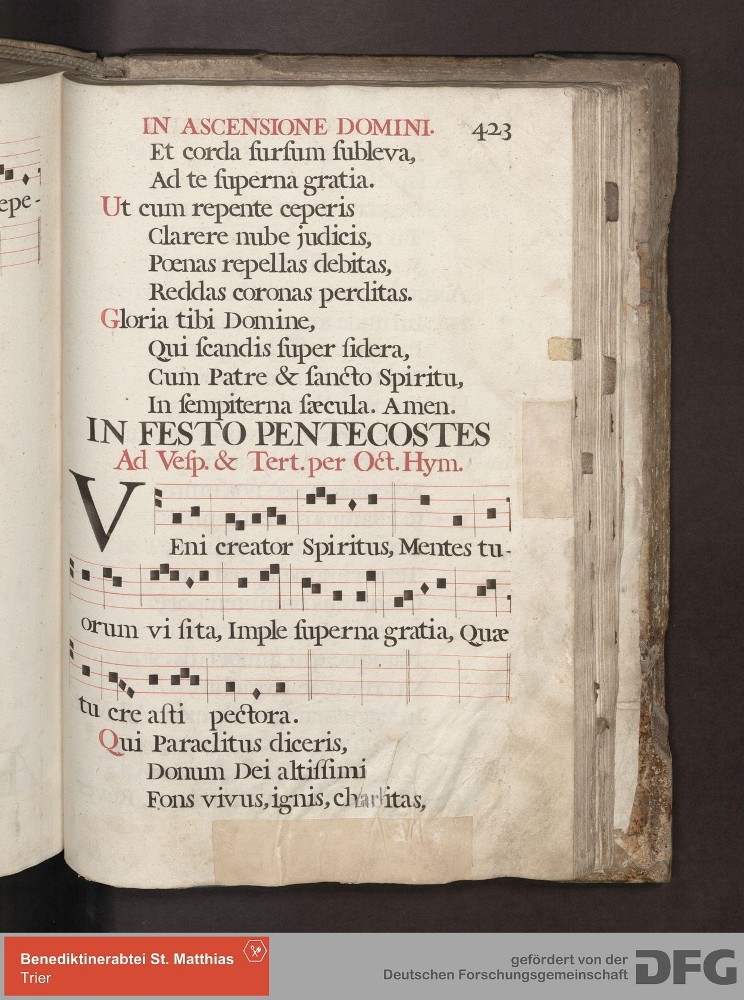 epe-
IN ASCENSIONE DOMINI. 423
Et corda ſurſum ſubleva,
Ad te ſuperna gratia.
Ut cum repente ceperis
Clarere nube judicis,
Pœnas repellas debitas,
Reddas coronas perditas.
Gloria tibi Domine,
Qui ſcandis ſuper ſidera,
Cum Patre & ſancto Spiritu,
In ſempiterna ſæcula. Amen.
IN FESTO PENTECOSTES
Ad Veſp. & Tert. per Oct. Hym.
VEni creator Spiritus, Mentes tu-
orum vi ſita, Imple ſuperna gratia, Quæ
tu cre aſti pectora.
Qui Paraclitus diceris,
Donum Dei altiſſimi
Fons vivus, ignis, charitas,
Benediktinerabtei St. Matthias
Trier
gefördert von der
Deutschen Forschungsgemeinschaft
DFG